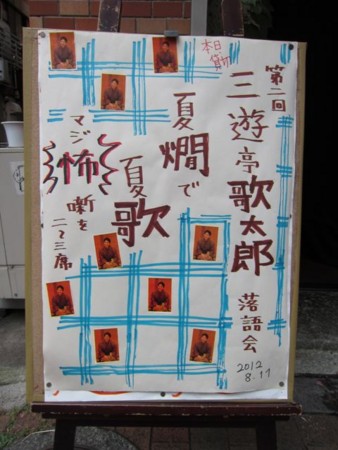 第二回
三遊亭歌太郎
落語会
2012
8.17
本日
貸切
夏燗で
夏歌
マジ怖噺を
二〜三席